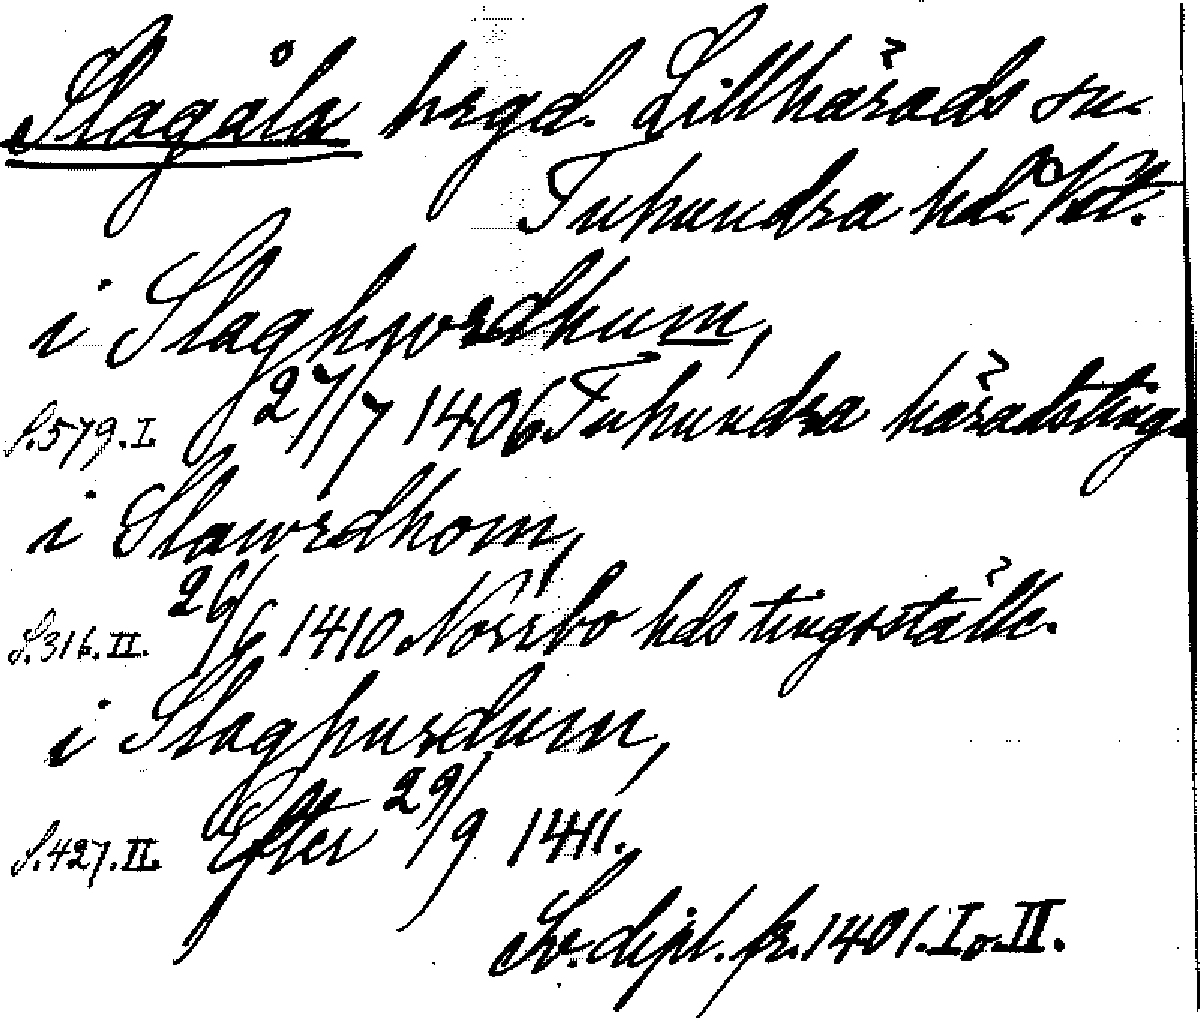 Slagåla hrgd. Lillhärads sn.
Tuhundra hd. Vstl.
i Slaghwrdhum,
S.579.I. 27/7 1406 Tuhundra häradsting.
i Slawrdhom,
S.316.II. 26/6 1410 Norrbo hds tingsställe.
i Slaghurdum,
S.427.II. Efter 29/9 1411.
Sv. dipl. fr. 1401. I o. II.